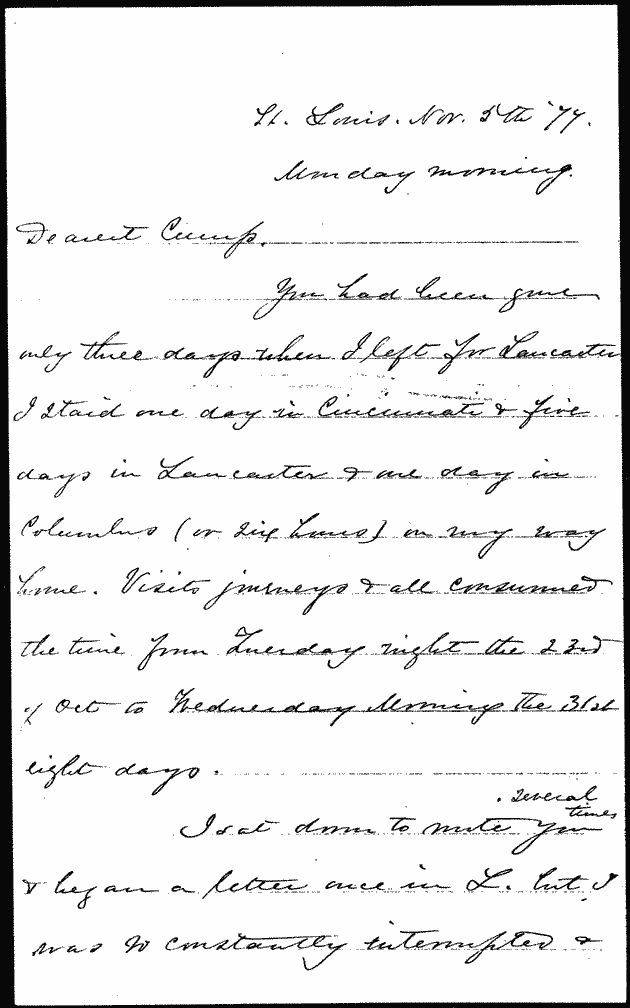 St. Louis. Nov. 5th '77.
Monday morning.
Dearest Cump.
You had been gone
only three days when I left for Lancaster
I staid one day in Cincinnati & five
days in Lancaster & one day in
Columbus (or six hours) on my way
home. Visits journeys & all consumed
the time from Tuesday night the 23rd
of Oct to Wednesday Morning the 31st
eight days.
several
times
I sat down to write you
& began a letter once in L. but I
was so constantly interrupted &